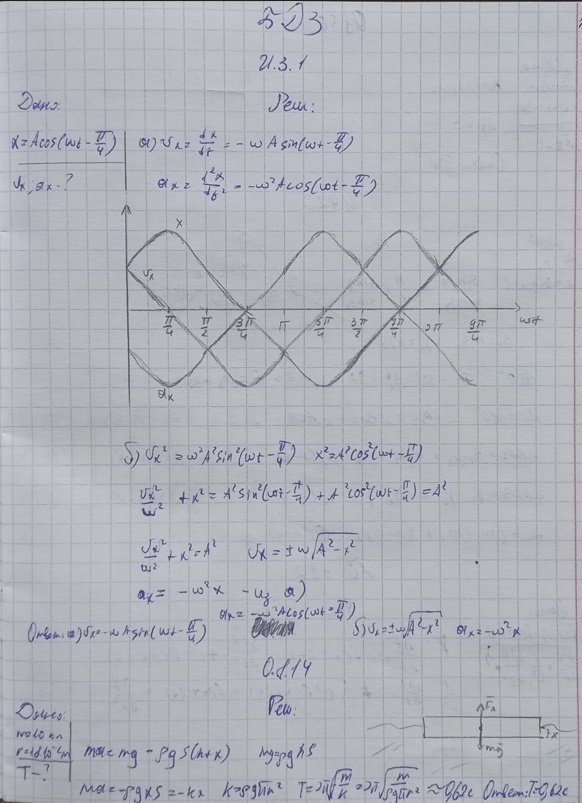 БДЗ
И.З.1
Дано:
Реш:
x=Acos(ωt-π/4)
а) υx = dx/dt = -ωAsin(ωt-π/4)
υx; ax-?
ax = d²x/dt² = -ω²Acos(ωt-π/4)
x
υx
π/4 π/2 3π/4 π 5π/4 3π/2 7π/4 2π 9π/4 ωt
ax
б) υx² = ω²A²sin²(ωt-π/4) x²=A²cos²(ωt-π/4)
υx²/ω² + x² = A²sin²(ωt-π/4) + A²cos²(ωt-π/4) = A²
υx²/ω² + x² = A² υx = ±ω√(A²-x²)
ax = -ω²x - из а)
Ответ: а) υx=-ωAsin(ωt-π/4) ax = -ω²Acos(ωt-π/4) б) υx=±ω√(A²-x²) ax=-ω²x
О.8.14
Дано:
Реш:
T-?
ma=mg-ρgS(h+x) mg=ρghS
FA
x
mg
ma=-ρgxS=-kx k=ρgπr² T=2π√(m/k)=2π√(m/(ρgπr²)) ≈0,62с Ответ: T=0,62с